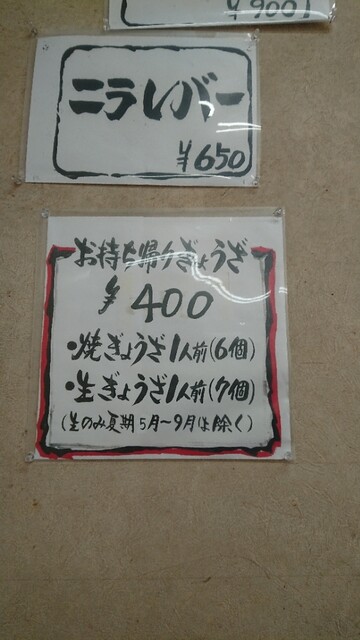 ¥900
ニラレバー
¥650
お持ち帰りぎょうざ
¥400
・焼ぎょうざ1人前(6個)
・生ぎょうざ1人前(7個)
(生のみ夏期5月〜9月は除く)